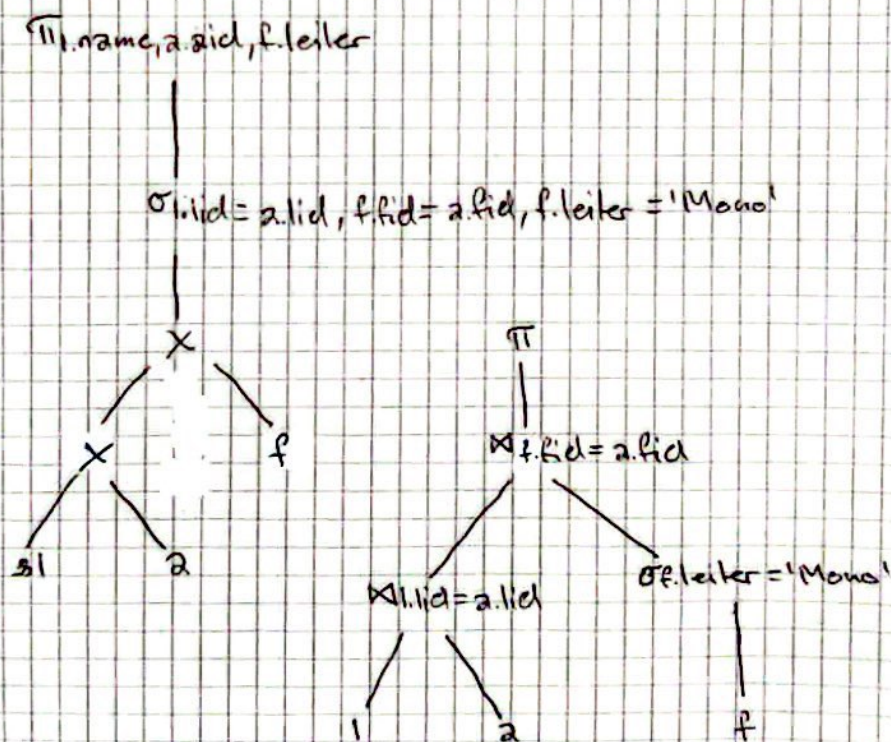 π l.name, a.aid, f.leiter
σ l.lid = a.lid, f.fid = a.fid, f.leiter = 'Mono'
×
π
×
f
⋈ f.fid = a.fid
l
a
⋈ l.lid = a.lid
σ f.leiter = 'Mono'
l
a
f